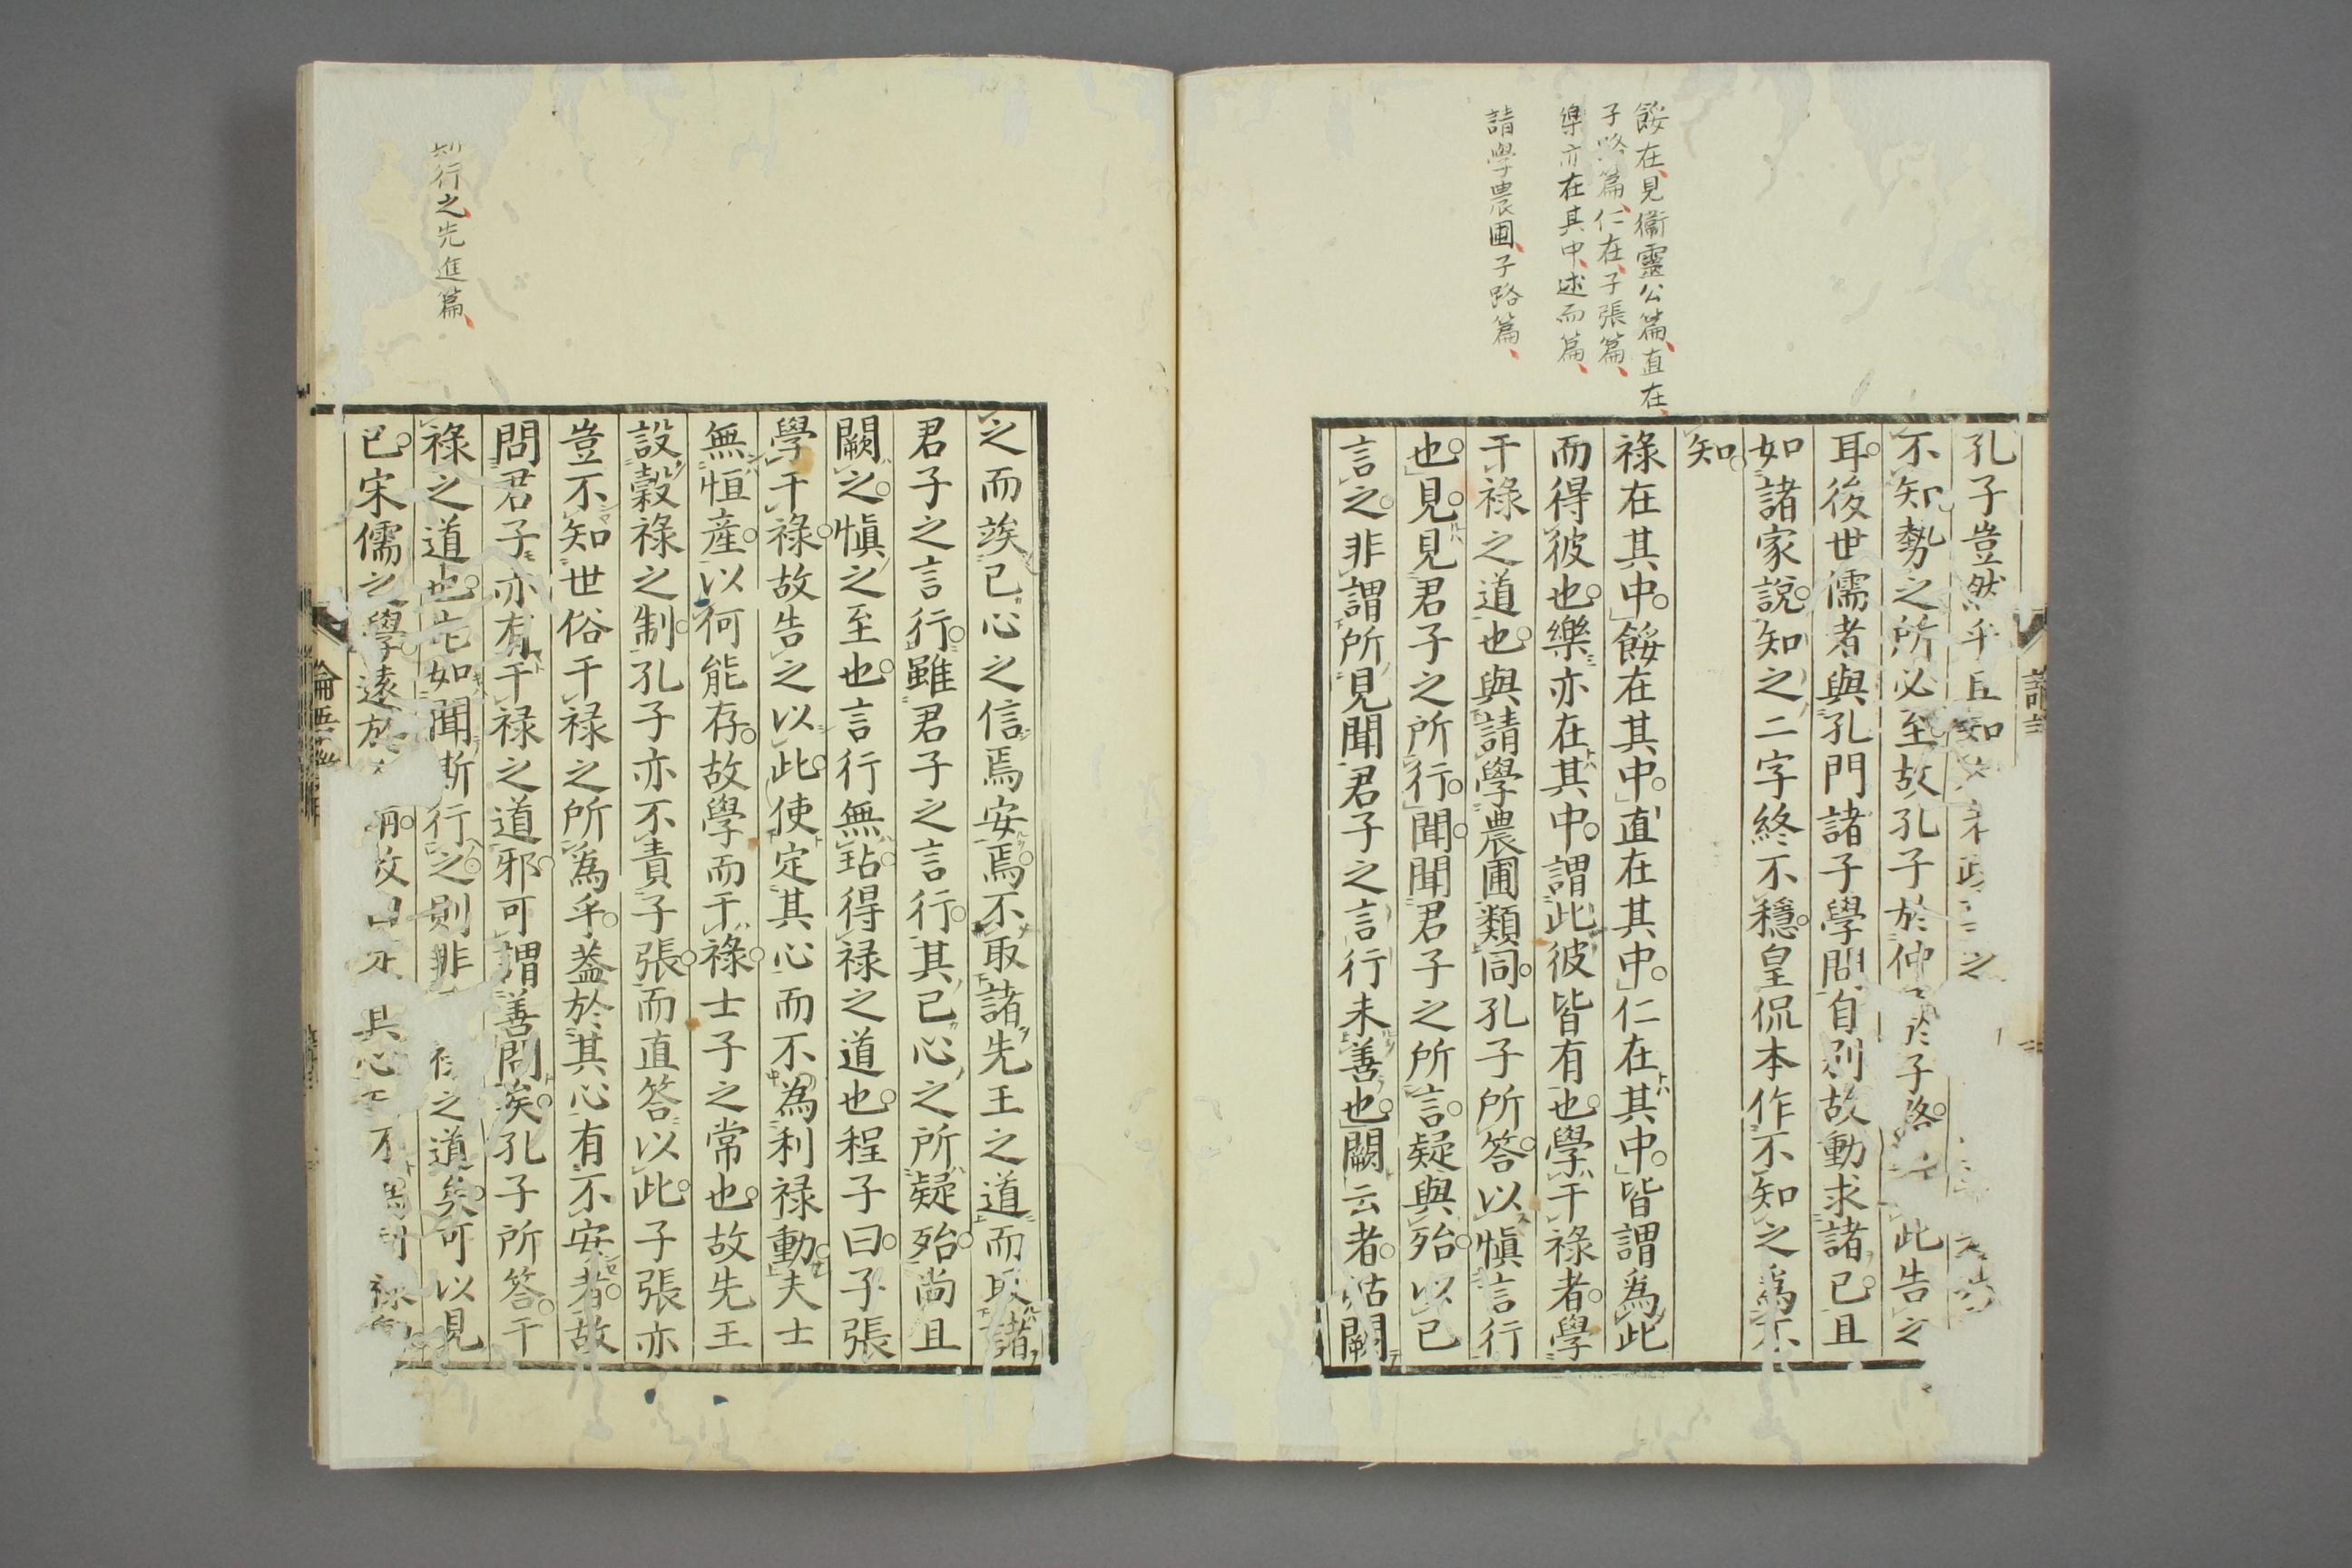 餒在見衞靈公篇直在
子路篇仁在子張篇
樂亦在其中述而篇
請學農圃子路篇
孔子豈然乎且知
不知勢之所必至故孔子於仲 於子路 此告之
耳後世儒者與孔門諸子學問自別故動求諸己且
如諸家說知之二字終不穩皇侃本作不知之爲不
知
祿在其中餒在其中直在其中仁在其中皆謂爲此
而得彼也樂亦在其中謂此彼皆有也學干祿者學
干祿之道也與請學農圃類同孔子所答以愼言行
也見見君子之所行聞聞君子之所言疑與殆以己
言之非謂所見聞君子之言行未善也闕云者姑闕
之而竢己心之信焉安焉不取諸先王之道而取諸
君子之言行雖君子之言行其己心之所疑殆尚且
闕之愼之至也言行無玷得祿之道也程子曰子張
學干祿故告之以此使定其心而不爲利祿動夫士
無恒產以何能存故學而干祿士子之常也故先王
設穀祿之制孔子亦不責子張而直答以此子張亦
豈不知世俗干祿之所爲乎蓋於其心有不安者故
問君子亦有干祿之道邪可謂善問矣孔子所答干
祿之道也 如聞斯行之則非 祿之道矣可以見
已宋儒之學遠於 故曰 其心 不爲利祿
則行之先進篇